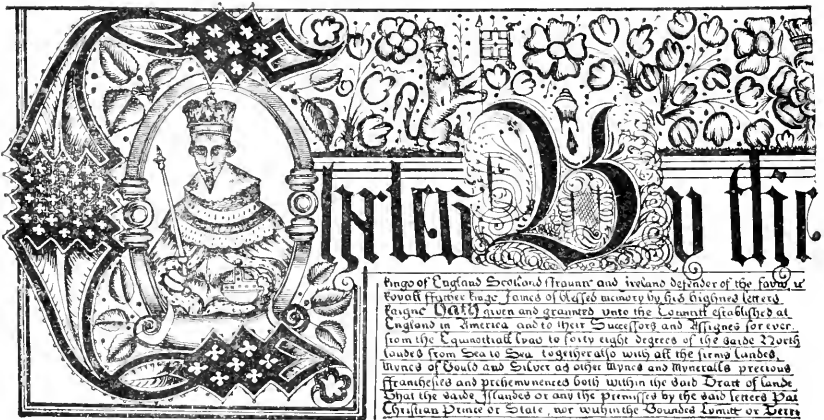 Charles By the
Kinge of England Scotland ffraunce and ireland defender of the fayth
Royall ffather kinge James of blessed memory by his highnes letters
Raigne Hath given and graunted vnto the Councill established at
England in America and to their Successors and Assignes for ever
from the Equinoctiall lyne to forty eight degrees of the saide North
landes from Sea to Sea together also with all the firme landes
Mynes of Gould and Silver as other Mynes and Myneralls precious
ffranchesies and preheminences both within the said Tract of lande
That the saide Islandes or any the premisses by the said letters
Christian Prince or State nor within the Boundes Lymitts or